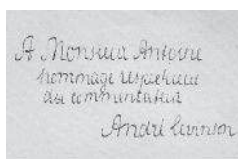 A Monsieur Antoine
hommage respectueux
du commentateur
André Levinson